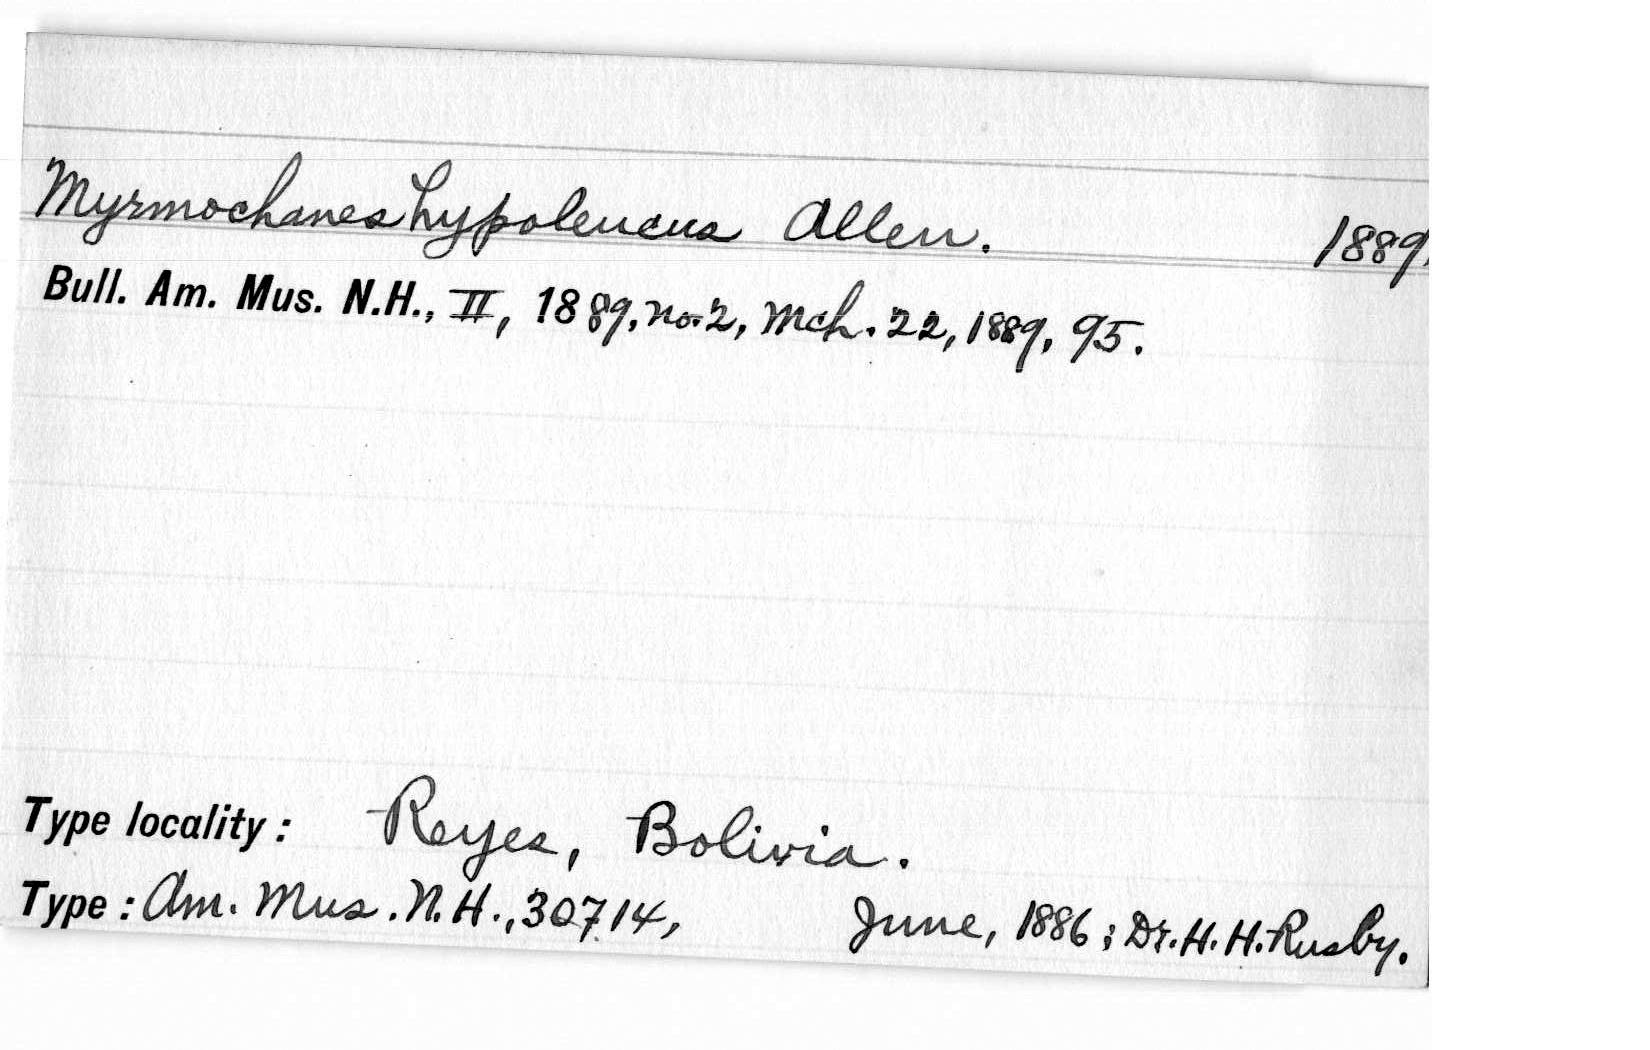 Myrmochanes hypoleucus Allen. 1889.
Bull. Am. Mus. N.H., II, 1889, no. 2, Mch. 22, 1889, 95.
Type locality: Reyes, Bolivia.
Type: Am. Mus. N.H., 30714, June, 1886; Dr. H. H. Rusby.